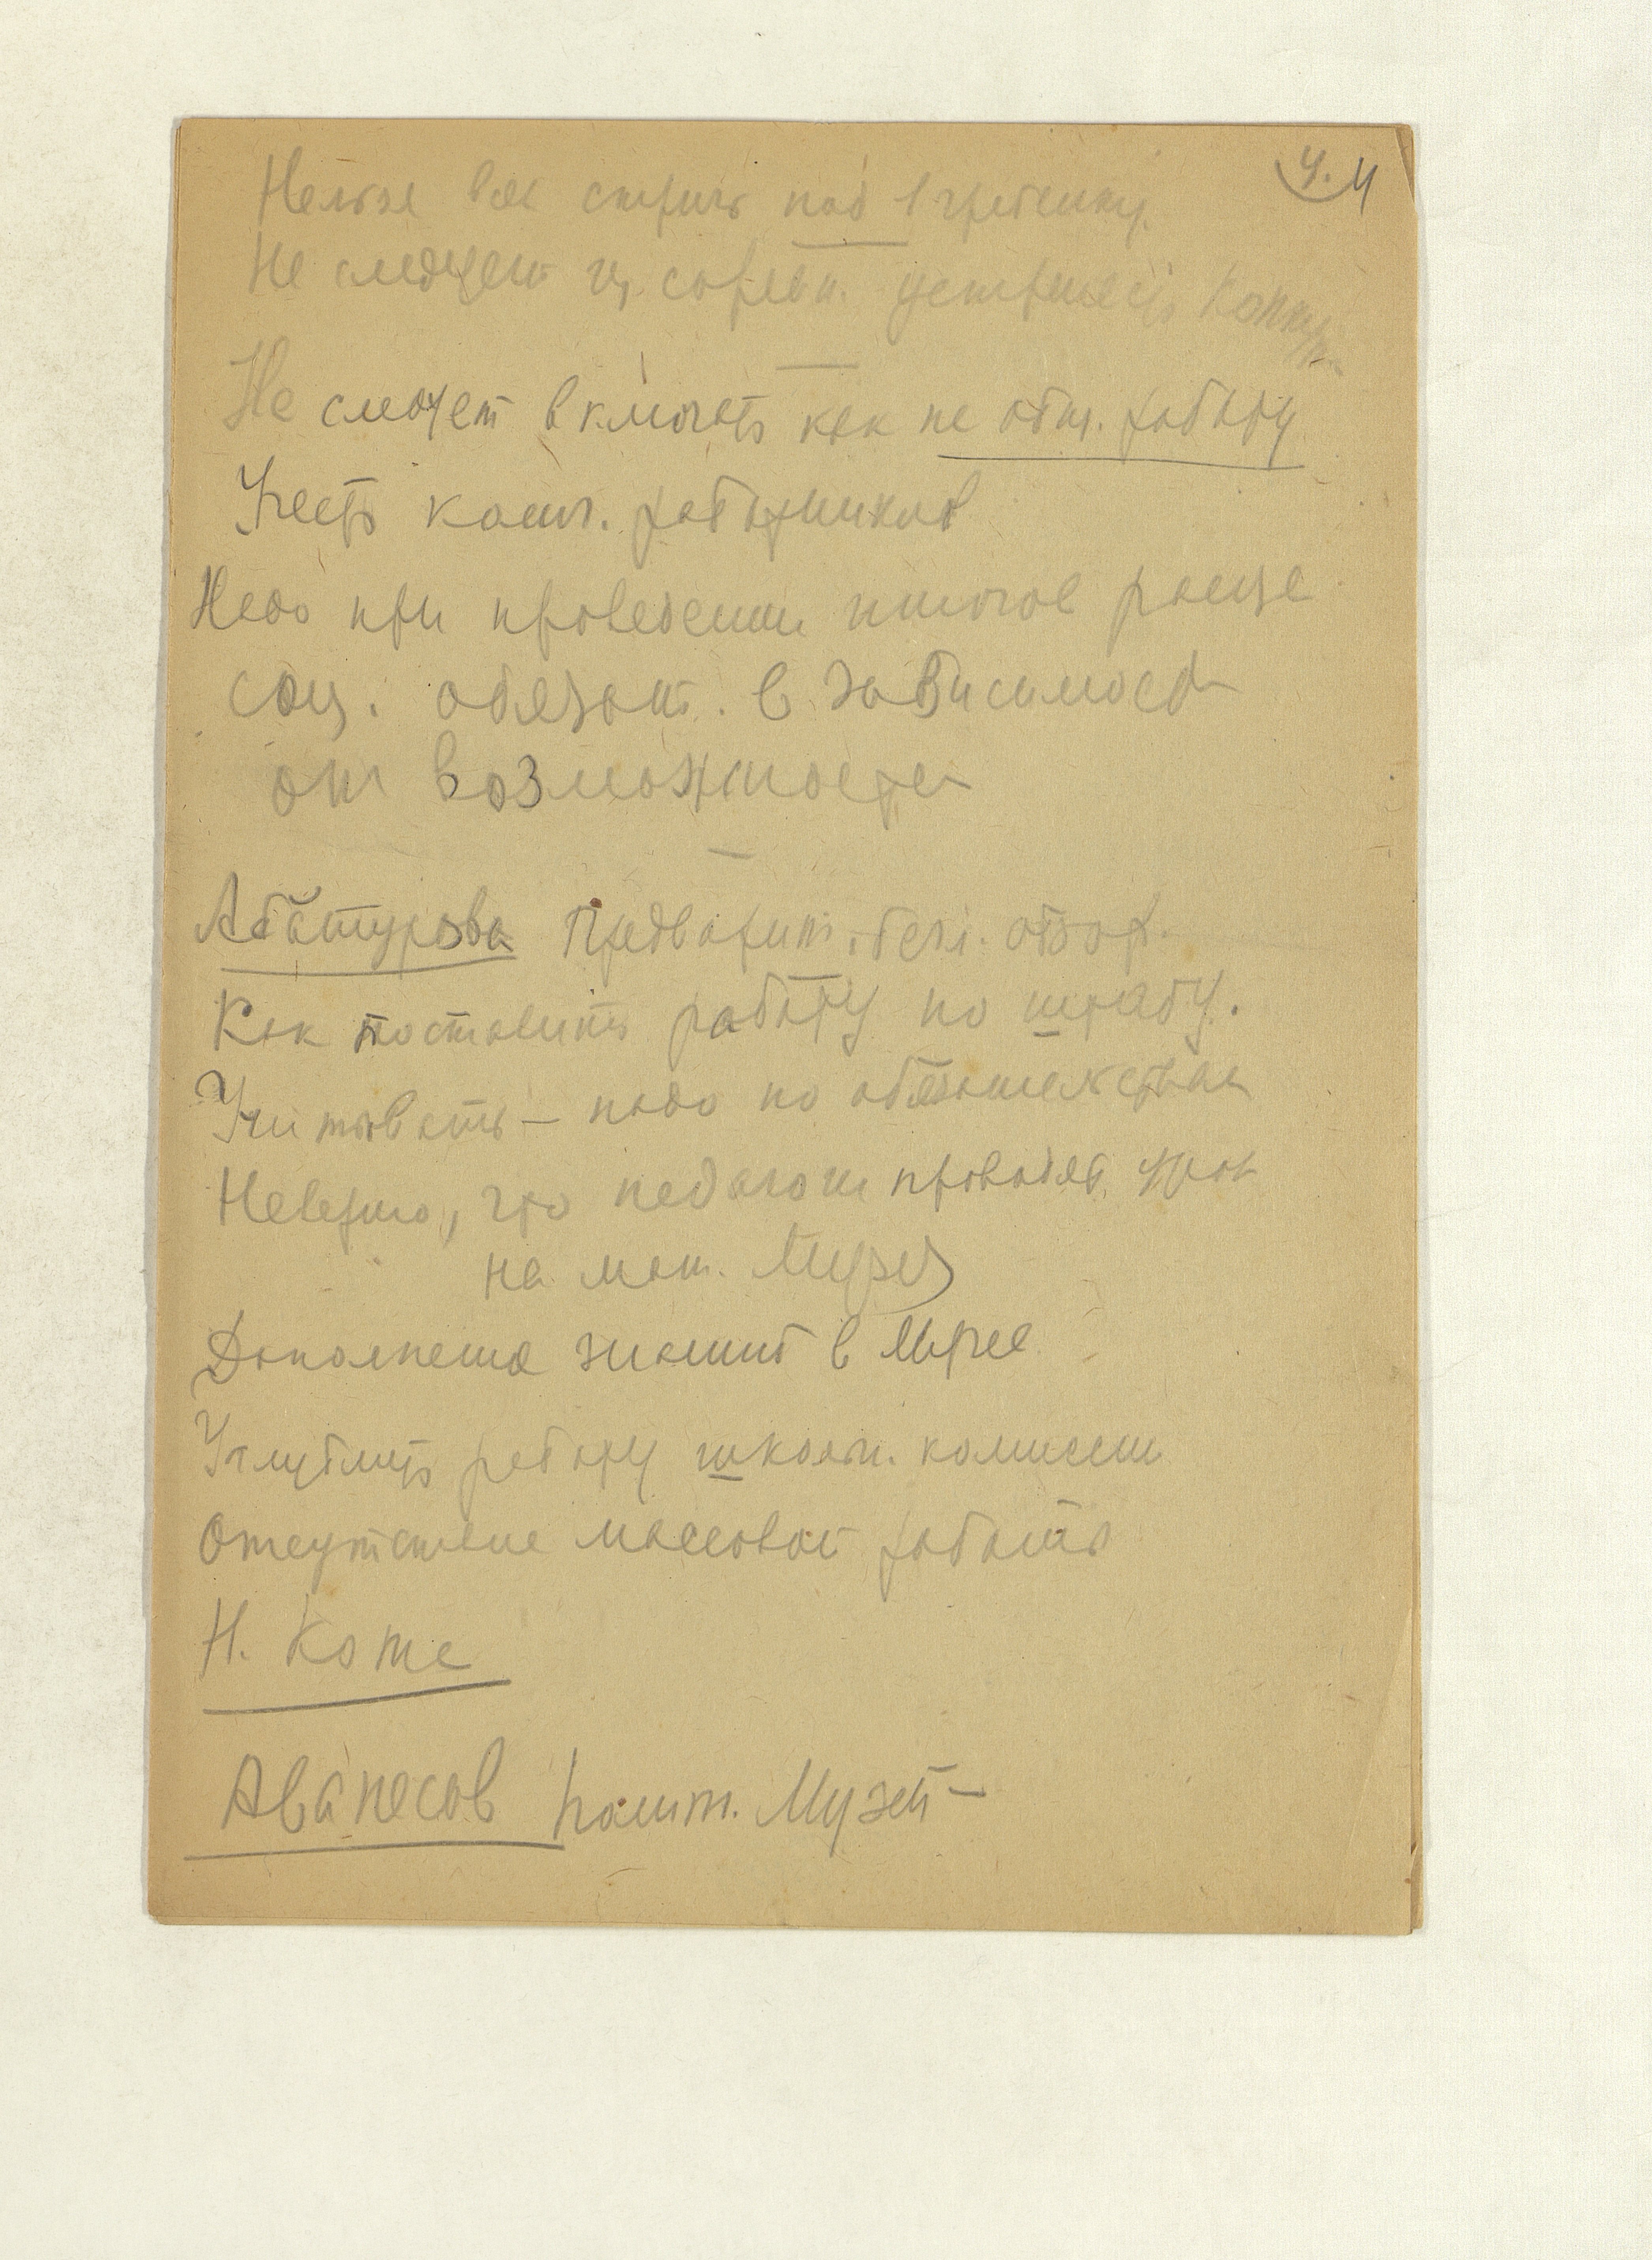 4. 4
Нельзя всех стричь под 1 гребенку.
Не следует из соревн. устраивать конкур
Не следует включать как не общ. работу
Учесть колич. работников
Надо при проведении итогов
соц. обязат. в зависимост
от возможностей
Абатурова Предварит.
Как поставить работу по штабу.
Учитывать – надо по обязательствам
Неверно, что педагоги проводят урок
на мат. Музея
Дополнение знаний в Музее
Углубить работу школьн. комиссии
Отсутствие массовой работы
Н. Коте
Аванесов Музей –